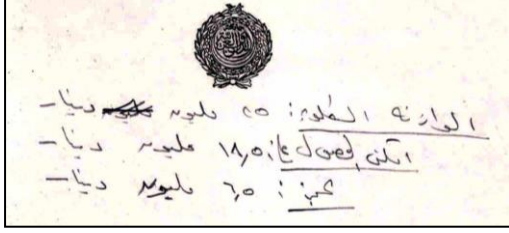 الموازنة المطلوبة: ٢٥ مليون دينار
امكن الحصول ع: ١٨,٥ مليون دينار
عجز: ٦,٥ مليون دينار